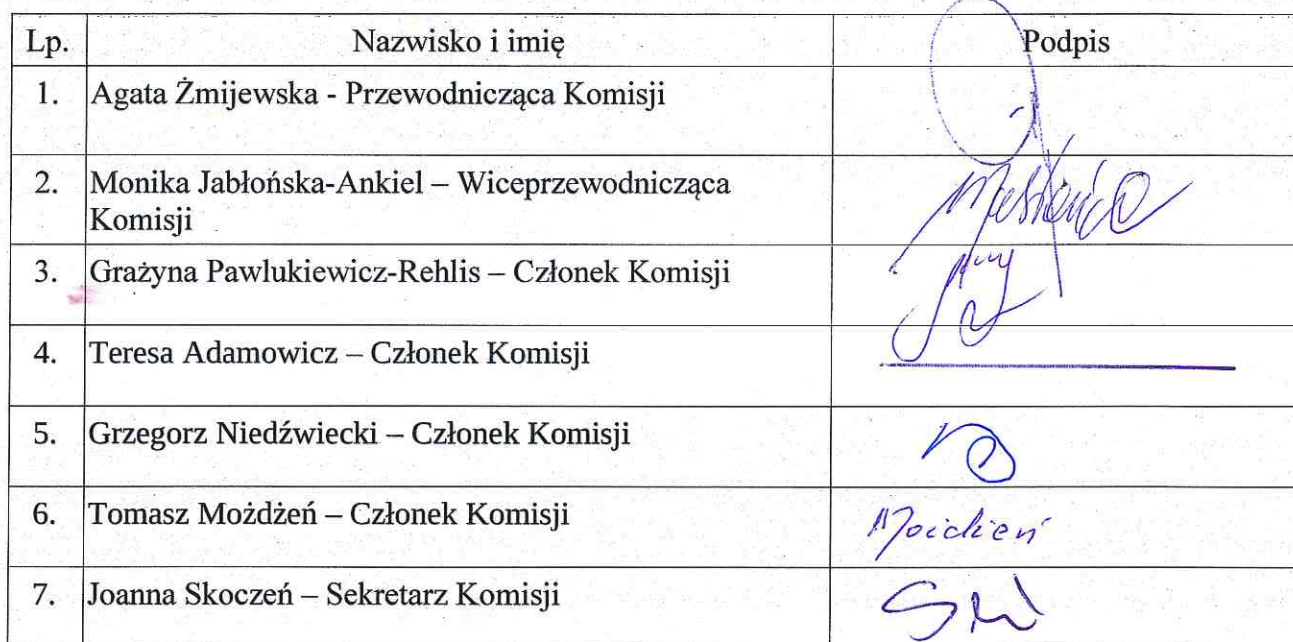 Lp. Nazwisko i imię Podpis
1. Agata Żmijewska - Przewodnicząca Komisji
2. Monika Jabłońska-Ankiel – Wiceprzewodnicząca
Komisji
3. Grażyna Pawlukiewicz-Rehlis – Członek Komisji
4. Teresa Adamowicz – Członek Komisji
5. Grzegorz Niedźwiecki – Członek Komisji
6. Tomasz Możdżeń – Członek Komisji
7. Joanna Skoczeń – Sekretarz Komisji